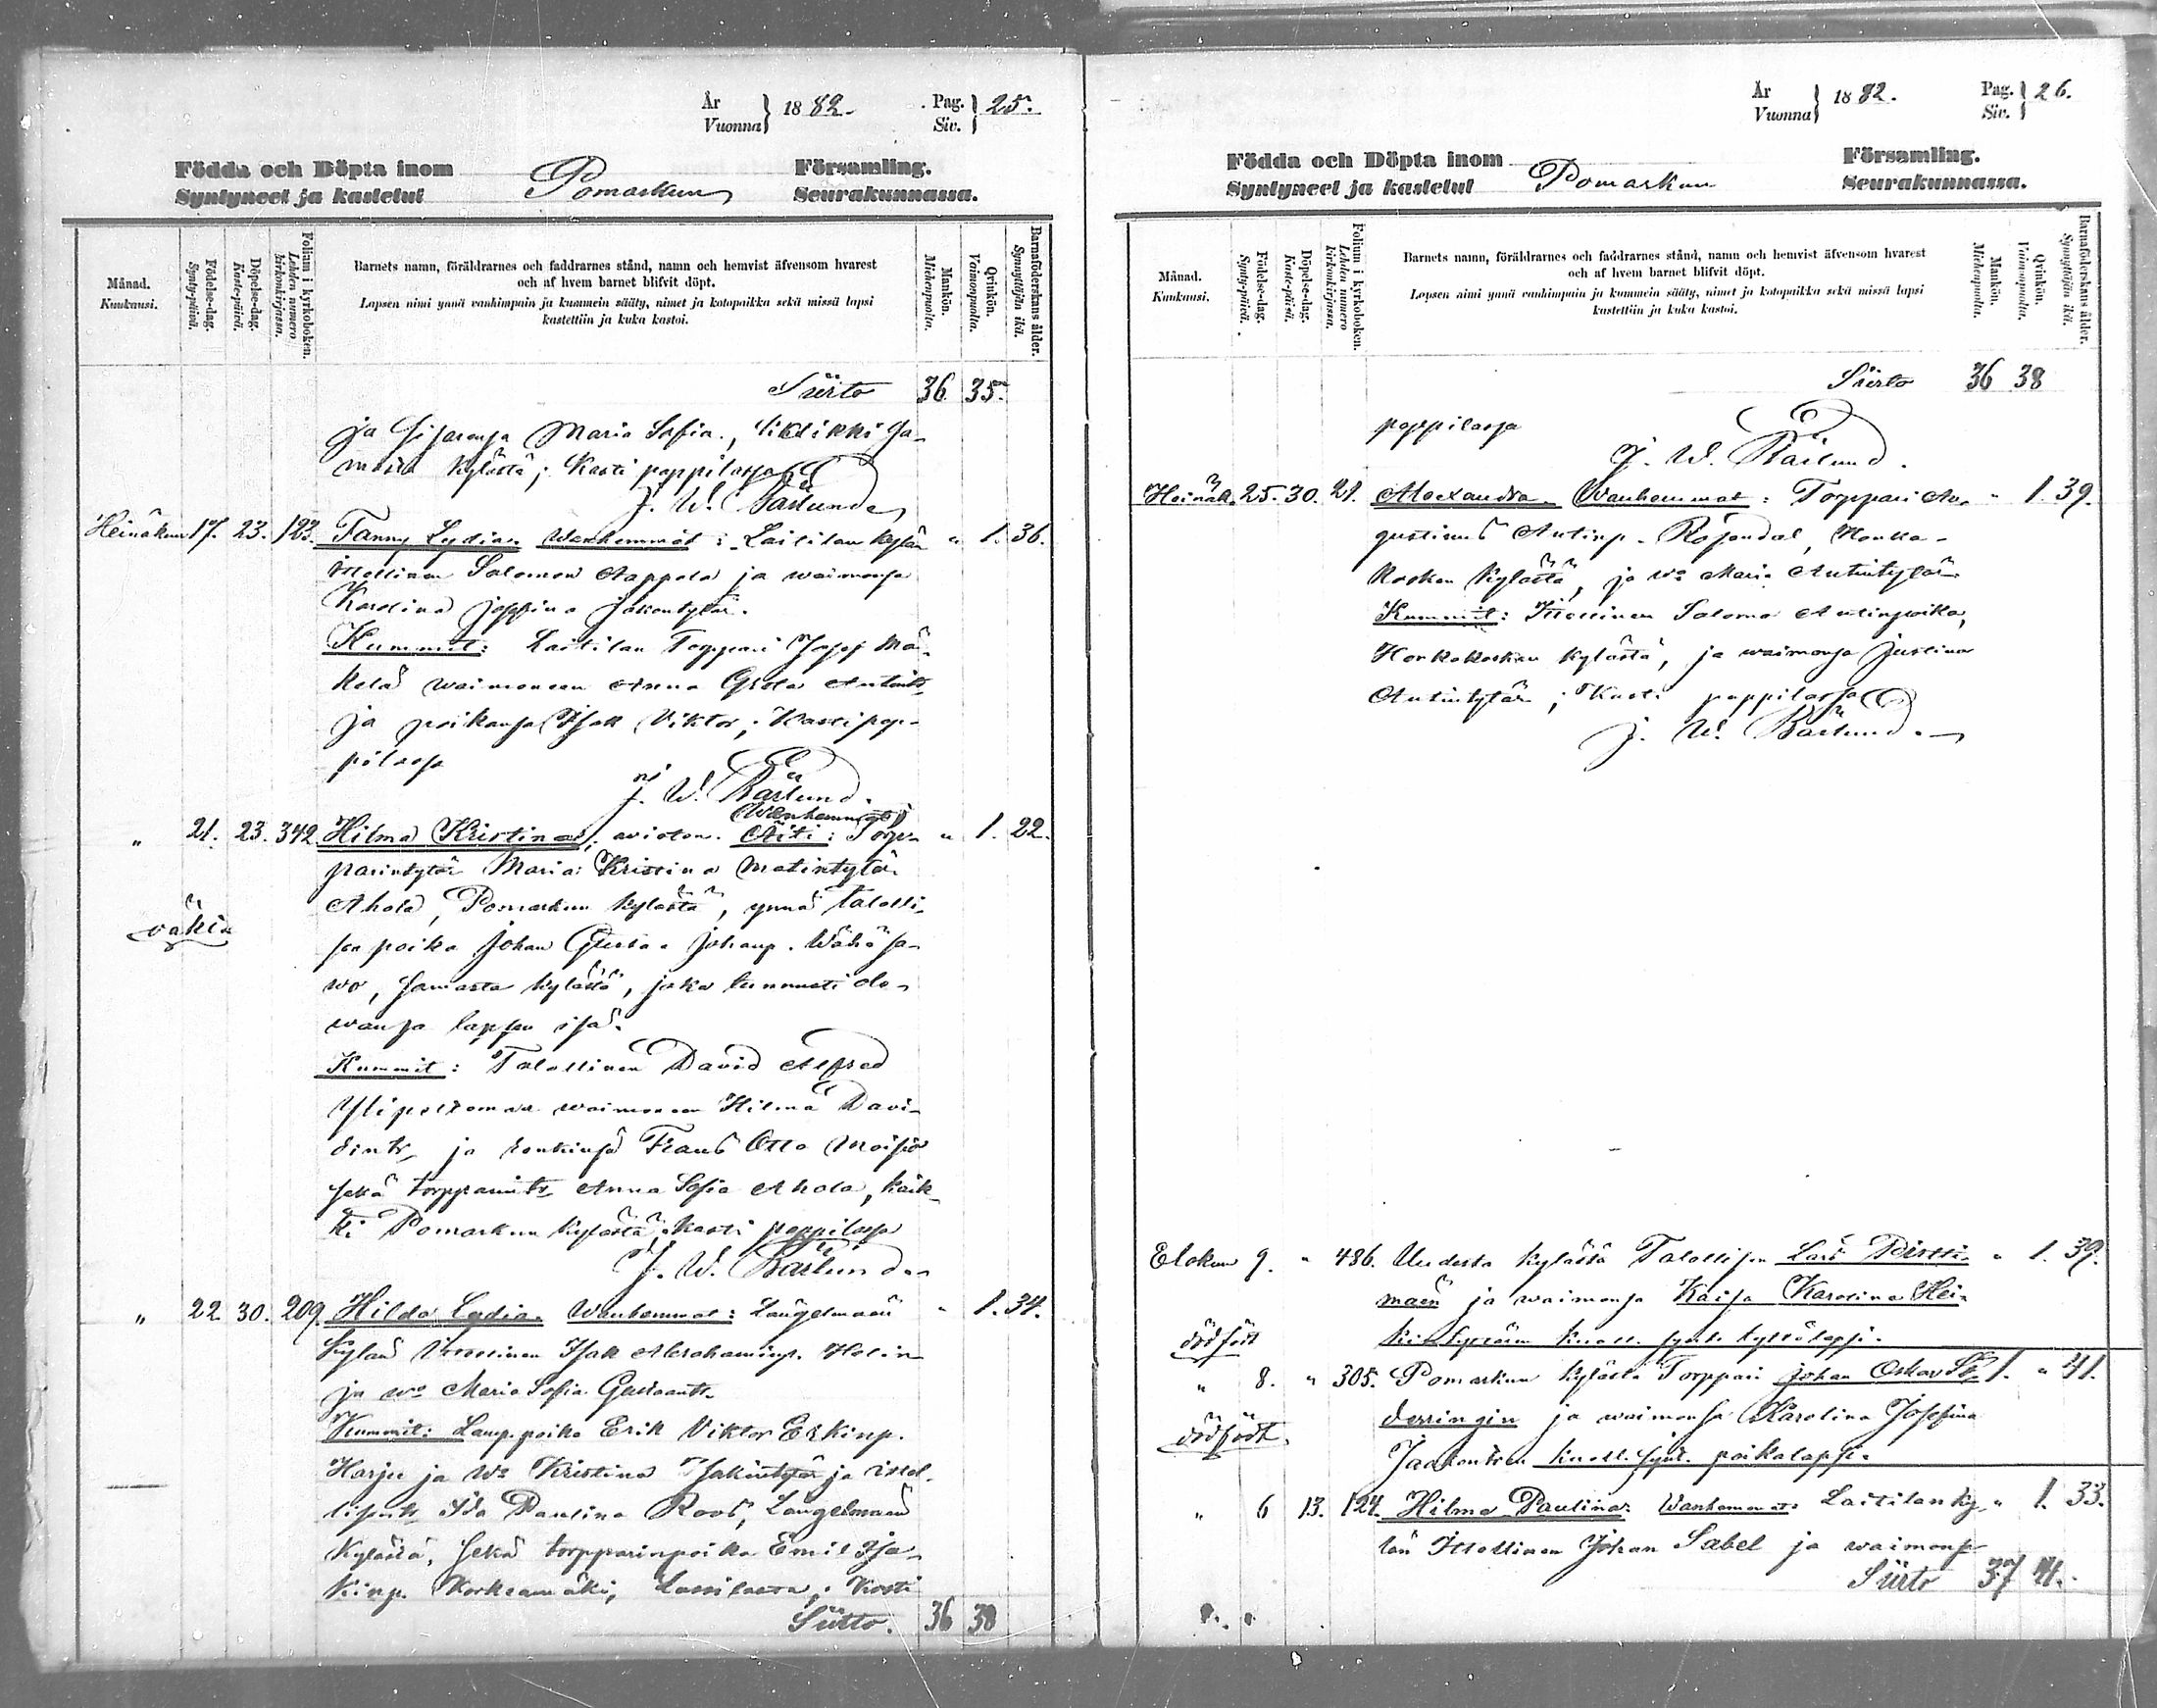 År
Vuonna } 1882.
Pag.
Siv. } 25.
Födda och Döpta inom
Syntyneet ja kastetut
Pomarkun
Församling.
Seurakunnassa.
Månad.
Kuukausi.
Födelse-dag.
Synty-päivä.
Döpelse-dag.
Kaste-päivä.
Folium i kyrkoboken.
Lehden numero kirkonkirjassa.
Barnets namn, föräldrarnes och faddrarnes stånd, namn och hemvist äfvensom hvarest
och af hvem barnet blifvit döpt.
Lapsen nimi ynnä vanhimpain ja kummein sääty, nimet ja kotopaikka sekä missä lapsi
kastettiin ja kuka kastoi.
Mankön.
Miehenpuolta.
Qvinkön.
Vaimonpuolta.
Barnaföderskans ålder.
Synnyttäjän ikä.
Siirto 36 35.
ja sisarensa Maria Sofia., sa-
masta kylästä; Kasti pappilassa
J. W. Bärlund
Heinäkuu 17. 23. 123. Fanny Lydia. Wanhemmat: Laitilan kylän " 1. 36.
Itsellinen Salomon Aappola ja waimonsa
Karolina Josefina Jakontytär.
Kummit: Laitilan Torppari Josef Mä-
kelä waimoneen Anna Greta Antint.
ja poikansa Isak Viktor; Kasti pap-
pilassa
J. W. Bärlund.
Wanhemmat
" 21. 23. 342. Hilma Kristina, avioton. Äiti: Torp- " 1. 22.
parintytär Maria Kristina Matintytär
Ahola, Pomarkun kylästä, ynnä talolli-
väkin
sen poika Johan Gustaa Johanp. Wähäsa-
wo, samasta kylästä, joka tunnusti ole-
wansa lapsen isä.
Kummit: Talollinen David Alfred
waimoneen Hilma Davi-
dintr. ja renkinsä Frans Otto Moisio
sekä torpparintr. Anna Sofia Ahola, kaik-
ki Pomarkun kylästä. Kasti pappilassa
J. W. Bärlund.
" 22. 30. 209. Hilda Lydia. Wanhemmat: Längelmään " 1. 34.
kylän Itsellinen Isak Abrahaminp. Holin
ja wo Maria Sofia Gustaantr.
Kummit: Lamp. poika Erik Viktor Erkinp.
Harju ja wo Kristina Isakintytär ja itsel-
lisentr. Ida Paulina Roos, Längelmään
kylästä, sekä torpparinpoika Emil Isa-
kinp. Korkeamäki, Lassilasta; Kasti
Siirto. 36 38
År
Vuonna } 1882.
Pag.
Siv. } 26.
Födda och Döpta inom
Syntyneet ja kastetut
Pomarkun
Församling.
Seurakunnassa.
Månad.
Kuukausi.
Födelse-dag.
Synty-päivä.
Döpelse-dag.
Kaste-päivä.
Folium i kyrkoboken.
Lehden numero kirkonkirjassa.
Barnets namn, föräldrarnes och faddrarnes stånd, namn och hemvist äfvensom hvarest
och af hvem barnet blifvit döpt.
Lapsen nimi ynnä vanhimpain ja kummein sääty, nimet ja kotopaikka sekä missä lapsi
kastettiin ja kuka kastoi.
Mankön.
Miehenpuolta.
Qvinkön.
Vaimonpuolta.
Barnaföderskans ålder.
Synnyttäjän ikä.
Siirto 36 38
pappilassa
J. W. Bärlund.
Heinäk. 25. 30. 21. Alexandra. Wanhemmat: Torppari Au- " 1. 39.
gustinus Antinp. Rosendal, Honka-
kosken kylästä, ja wo Maria Antintytär
Kummit: Itsellinen Salomo Antinpoika,
Honkakosken kylästä, ja waimonsa Justina
Antintytär; Kasti pappilassa
J. W. Bärlund.
Elokuu 9. " 486. Uudesta kylästä Talollisen Lars Pirtti- " 1. 39.
mäen ja waimonsa Kaisa Karolina Hei-
dödfödt
kintyttären kuoll. synt. tyttölapsi.
" 8. " 305. Pomarkun kylästä Torppari Johan Oskar Sö- 1. " 41.
derringin ja waimonsa Karolina Josefina
dödfödt.
Jaakontr:en kuoll. synt. poikalapsi.
" 6 13. 124. Hilma Paulina. Wanhemmat: Laitilan ky- " 1. 33.
län Itsellinen Johan Sabel ja waimonsa
Siirto 37 41.